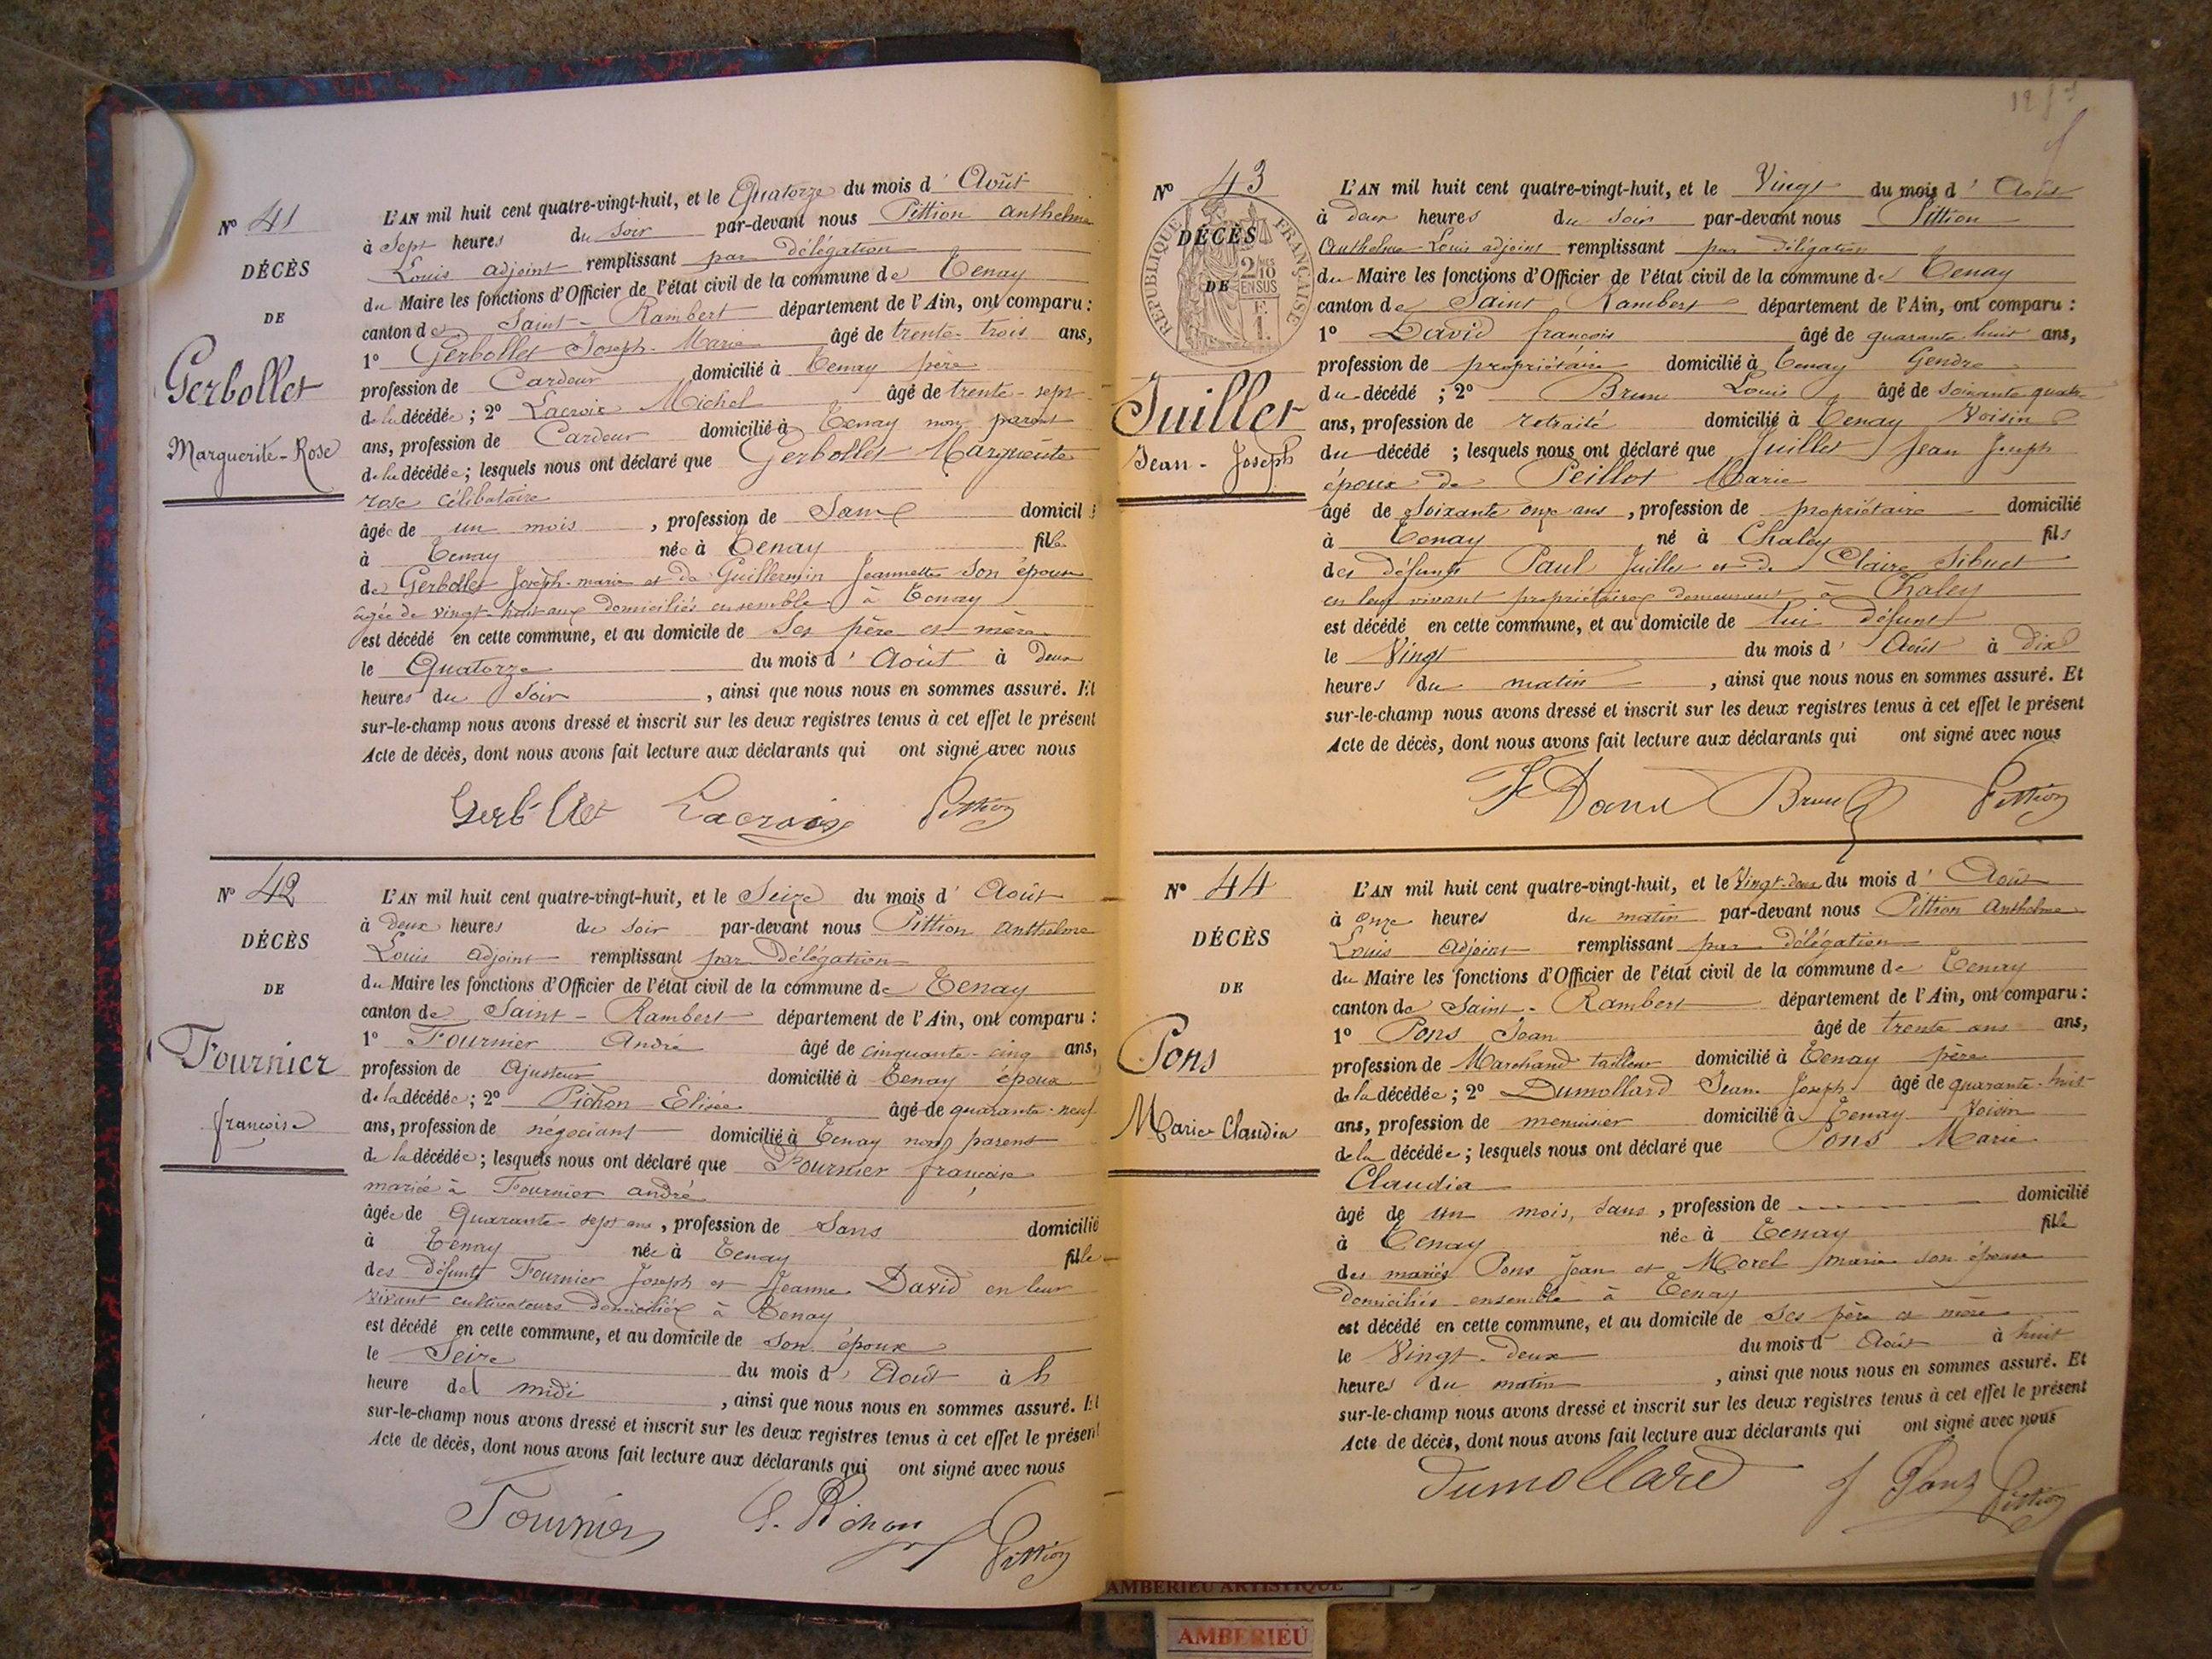 Nº 41
DÉCÈS
DE
Gerbollet
Marguerite-Rose
L'AN mil huit cent quatre-vingt-huit, et le Quatorze du mois d'Août
à Sept heures du soir par-devant nous Pittion anthelme
Louis adjoint remplissant par délégation
du Maire les fonctions d'Officier de l'état civil de la commune de Tenay
canton de Saint-Rambert département de l'Ain, ont comparu :
1º Gerbollet Joseph-Marie âgé de trente-trois ans,
profession de Cardeur domicilié à Tenay père
de la décédée ; 2º Lacroix Michel âgé de trente-sept
ans, profession de Cardeur domicilié à Tenay non parent
de la décédée ; lesquels nous ont déclaré que Gerbollet Marguerite
rose célibataire
âgée de un mois , profession de Sans domicilié
à Tenay née à Tenay fille
de Gerbollet Joseph-marie et de Guillermin Jeannette son épouse
âgée de vingt-huit ans domiciliés ensemble à Tenay
est décédé en cette commune, et au domicile de Ses père et mère
le Quatorze du mois d'Août à Deux
heures du Soir , ainsi que nous nous en sommes assuré. Et
sur-le-champ nous avons dressé et inscrit sur les deux registres tenus à cet effet le présent
Acte de décès, dont nous avons fait lecture aux déclarants qui ont signé avec nous
Gerbollet Lacroix Pittion
Nº 42
DÉCÈS
DE
Fournier
françoise
L'AN mil huit cent quatre-vingt-huit, et le Seize du mois d'Août
à deux heures du soir par-devant nous Pittion anthelme
Louis adjoint remplissant par Délégation
du Maire les fonctions d'Officier de l'état civil de la commune de Tenay
canton de Saint-Rambert département de l'Ain, ont comparu :
1º Fournier André âgé de cinquante-cinq ans,
profession de Ajusteur domicilié à Tenay époux
de la décédée ; 2º Pichon Elisée âgé de quarante-neuf
ans, profession de négociant domicilié à Tenay non parent
de la décédée ; lesquels nous ont déclaré que Fournier françoise
mariée à Fournier andré
âgée de Quarante-sept ans , profession de Sans domicilié
à Tenay née à Tenay fille
des défunts Fournier Joseph et Jeanne David en leur
vivant cultivateurs domiciliés à Tenay
est décédé en cette commune, et au domicile de son époux
le Seize du mois d'Août à h
heure de midi , ainsi que nous nous en sommes assuré. Et
sur-le-champ nous avons dressé et inscrit sur les deux registres tenus à cet effet le présent
Acte de décès, dont nous avons fait lecture aux déclarants qui ont signé avec nous
Fournier E. Pichon Pittion
Nº 43
DÉCÈS
DE
RÉPUBLIQUE FRANÇAISE
2/10 EN SUS
Juillet
Jean-Joseph
L'AN mil huit cent quatre-vingt-huit, et le Vingt du mois d'Août
à deux heures du soir par-devant nous Pittion
Anthelme Louis adjoint remplissant par délégation
du Maire les fonctions d'Officier de l'état civil de la commune de Tenay
canton de Saint Rambert département de l'Ain, ont comparu :
1º David françois âgé de quarante huit ans,
profession de propriétaire domicilié à Tenay Gendre
du décédé ; 2º Brun Louis âgé de soixante quatre
ans, profession de retraité domicilié à Tenay Voisin
du décédé ; lesquels nous ont déclaré que Juillet Jean Joseph
époux de Peillot Marie
âgé de Soixante onze ans , profession de propriétaire domicilié
à Tenay né à Chaley fils
des défunts Paul Juillet et de Claire Sibuet
en leur vivant propriétaires demeurant à Chaley
est décédé en cette commune, et au domicile de lui défunt
le Vingt du mois d'Août à Dix
heures du matin , ainsi que nous nous en sommes assuré. Et
sur-le-champ nous avons dressé et inscrit sur les deux registres tenus à cet effet le présent
Acte de décès, dont nous avons fait lecture aux déclarants qui ont signé avec nous
Brun Pittion
Nº 44
DÉCÈS
DE
Pons
Marie Claudia
L'AN mil huit cent quatre-vingt-huit, et le Vingt-deux du mois d'Août
à onze heures du matin par-devant nous Pittion Anthelme
Louis Adjoint remplissant par délégation
du Maire les fonctions d'Officier de l'état civil de la commune de Tenay
canton de Saint-Rambert département de l'Ain, ont comparu :
1º Pons Jean âgé de trente ans ans,
profession de Marchand tailleur domicilié à Tenay père
de la décédée ; 2º Dumollard Jean Joseph âgé de quarante-huit
ans, profession de menuisier domicilié à Tenay Voisin
de la décédée ; lesquels nous ont déclaré que Pons Marie
Claudia
âgé de un mois, sans , profession de domicilié
à Tenay née à Tenay fille
des mariés Pons Jean et Morel marie son épouse
domiciliés ensemble à Tenay
est décédé en cette commune, et au domicile de ses père et mère
le Vingt-deux du mois d'Août à huit
heures du matin , ainsi que nous nous en sommes assuré. Et
sur-le-champ nous avons dressé et inscrit sur les deux registres tenus à cet effet le présent
Acte de décès, dont nous avons fait lecture aux déclarants qui ont signé avec nous
Dumollard J Pons Pittion
AMBERIEU ARTISTIQUE
AMBERIEU